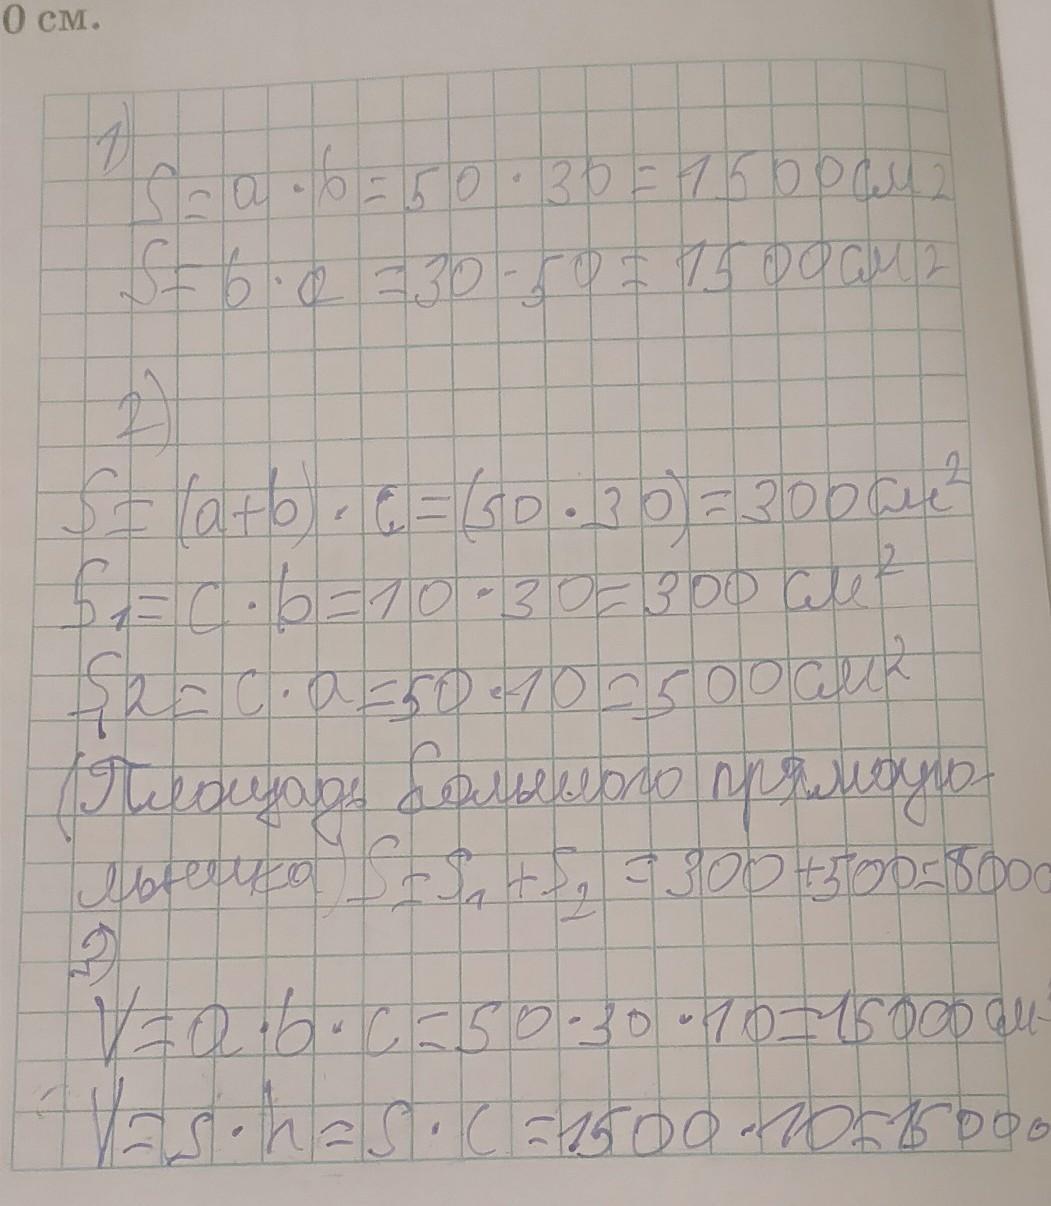 0 см.
1)
S = a · b = 50 · 30 = 1500 см2
S = b · a = 30 · 50 = 1500 см2
2)
S = (a+b) · c = (50 · 30) = 300 см²
S₁ = c · b = 10 · 30 = 300 см²
S2 = c · a = 50 · 10 = 500 см²
(Площадь большого прямоуго-
льника) S = S₁ + S₂ = 300 + 500 = 800
3)
V = a · b · c = 50 · 30 · 10 = 15000 см
V = S · h = S · c = 1500 · 10 = 15000